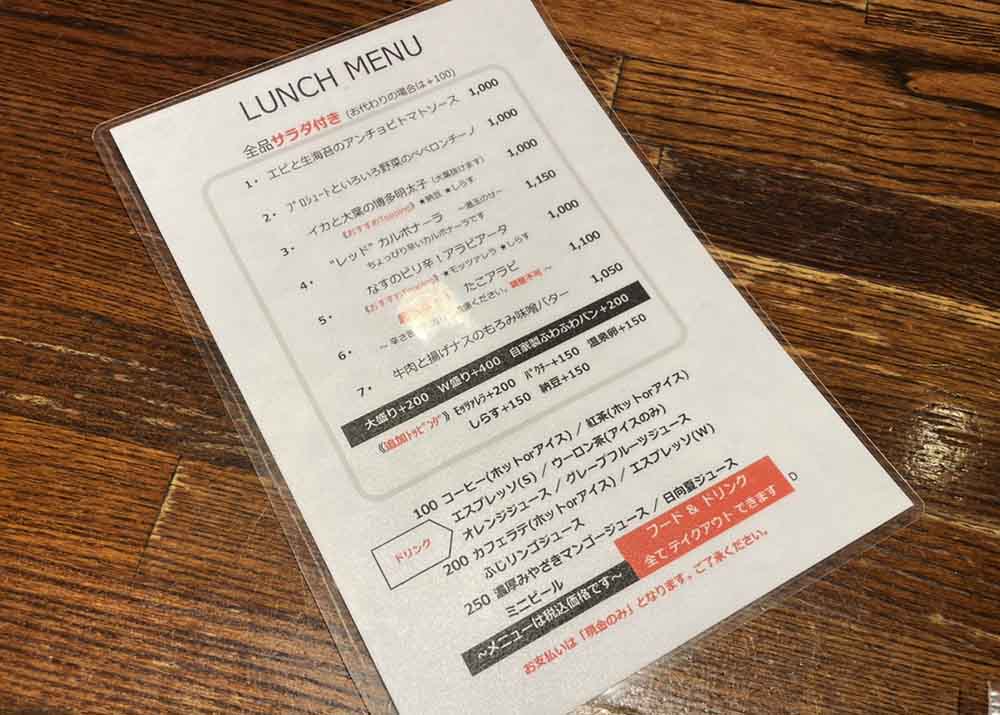 LUNCH MENU
全品サラダ付き (お代わりの場合は+100)
1. エビと生海苔のアンチョビトマトソース 1,000
2. プロシュートといろいろ野菜のペペロンチーノ 1,000
3. イカと大葉の博多明太子 (大葉抜けます) 1,000
《おすすめTopping》 ★納豆 ★しらす
4. "レッド" カルボナーラ ～温玉のせ～ 1,150
ちょっぴり辛いカルボナーラです
5. なすのピリ辛!アラビアータ 1,000
《おすすめTopping》★モッツァレラ ★しらす
6. たこアラビ 1,100
～ 辛さ ください。調整不可 ～
7. 牛肉と揚げナスのもろみ味噌バター 1,050
大盛り+200 W盛り+400 自家製ふわふわパン+200
《追加トッピング》 モッツァレラ+200 パクチー+150 温泉卵+150
しらす+150 納豆+150
ドリンク
100 コーヒー(ホットorアイス) / 紅茶(ホットorアイス)
エスプレッソ(S) / ウーロン茶(アイスのみ)
オレンジジュース / グレープフルーツジュース
200 カフェラテ(ホットorアイス) / エスプレッソ(W)
ふじリンゴジュース
250 濃厚みやざきマンゴージュース / 日向夏ジュース
ミニビール
フード & ドリンク
全てテイクアウトできます
D
～メニューは税込価格です～
お支払いは「現金のみ」となります。ご了承ください。